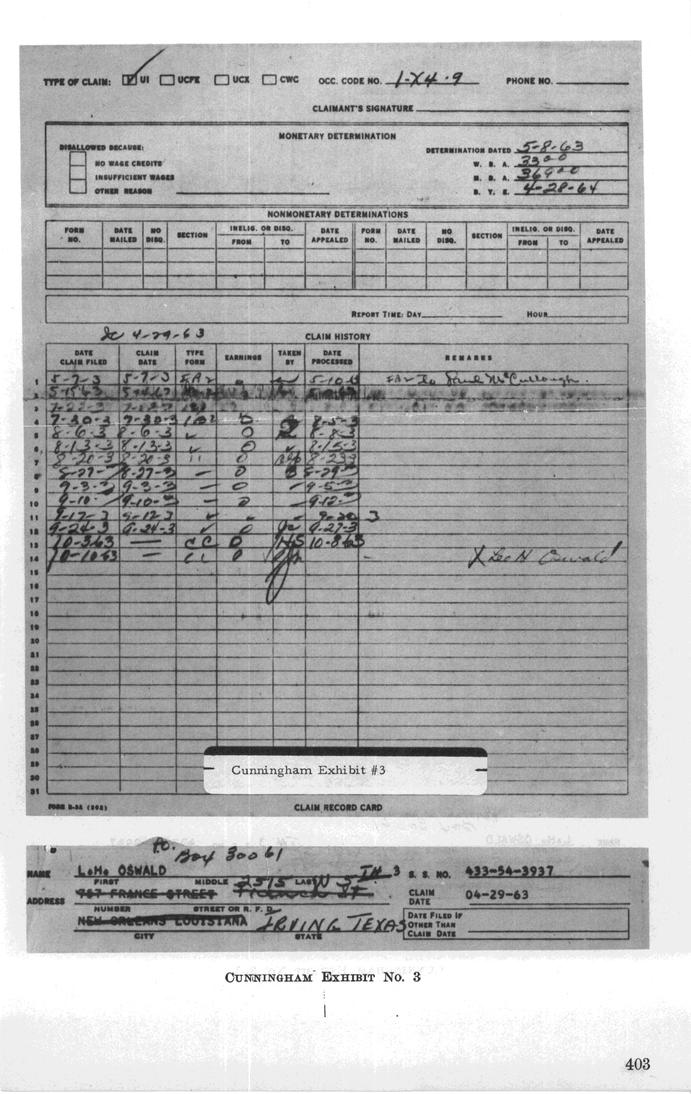 TYPE OF CLAIM: UI UCFE UCX CWC OCC. CODE NO. 1-X4.9 PHONE NO.
CLAIMANT'S SIGNATURE
MONETARY DETERMINATION
DISALLOWED BECAUSE: DETERMINATION DATED 5-8-63
NO WAGE CREDITS W. B. A. 33 00
INSUFFICIENT WAGES M. B. A. 369 00
OTHER REASON B. Y. E. 4-28-64
NONMONETARY DETERMINATIONS
FORM NO. DATE MAILED NO DISQ. SECTION INELIG. OR DISQ. FROM TO DATE APPEALED FORM NO. DATE MAILED NO DISQ. SECTION INELIG. OR DISQ. FROM TO DATE APPEALED
REPORT TIME: DAY HOUR
4-29-63 CLAIM HISTORY
DATE CLAIM FILED CLAIM DATE TYPE FORM EARNINGS TAKEN BY DATE PROCESSED REMARKS
1 5-7-3 5-7-3 5-10-63 to Paul McCullough.
2 5-15-63
3 7-22-3
4 7-30-3 7-30-3 0 8-5-3
5 8-6-3 8-6-3 ✓ 0 8-8-3
6 8-13-3 8-13-3 ✓ 0 8-15-3
7 8-20-3 8-20-3 " 0 8-23-3
8 8-27- 8-27-3 — 0 8-29-3
9 9-3-3 9-3-3 — 0 9-5-3
10 9-10- 9-10-3 — 0 9-12-3
11 9-17-3 9-17-3 ✓ 9-20 3
12 9-24-3 9-24-3 ✓ 0 9-27-3
13 10-3-63 — CC 0 HS 10-8-63
14 10-10-63 — CC 0 X Lee H Oswald
15
16
17
18
19
20
21
22
23
24
25
26
27
28
29
30
31
Cunningham Exhibit #3
FORM B-3A (202) CLAIM RECORD CARD
P.O. Box 30061
NAME L.H. OSWALD 3 S. S. NO. 433-54-3937
FIRST MIDDLE LAST 2515 W 5
ADDRESS 757 FRANCE STREET French St. CLAIM DATE 04-29-63
NUMBER STREET OR R. F. D.
NEW ORLEANS LOUISIANA IRVING TEXAS DATE FILED IF OTHER THAN CLAIM DATE
CITY STATE
CUNNINGHAM EXHIBIT NO. 3
403